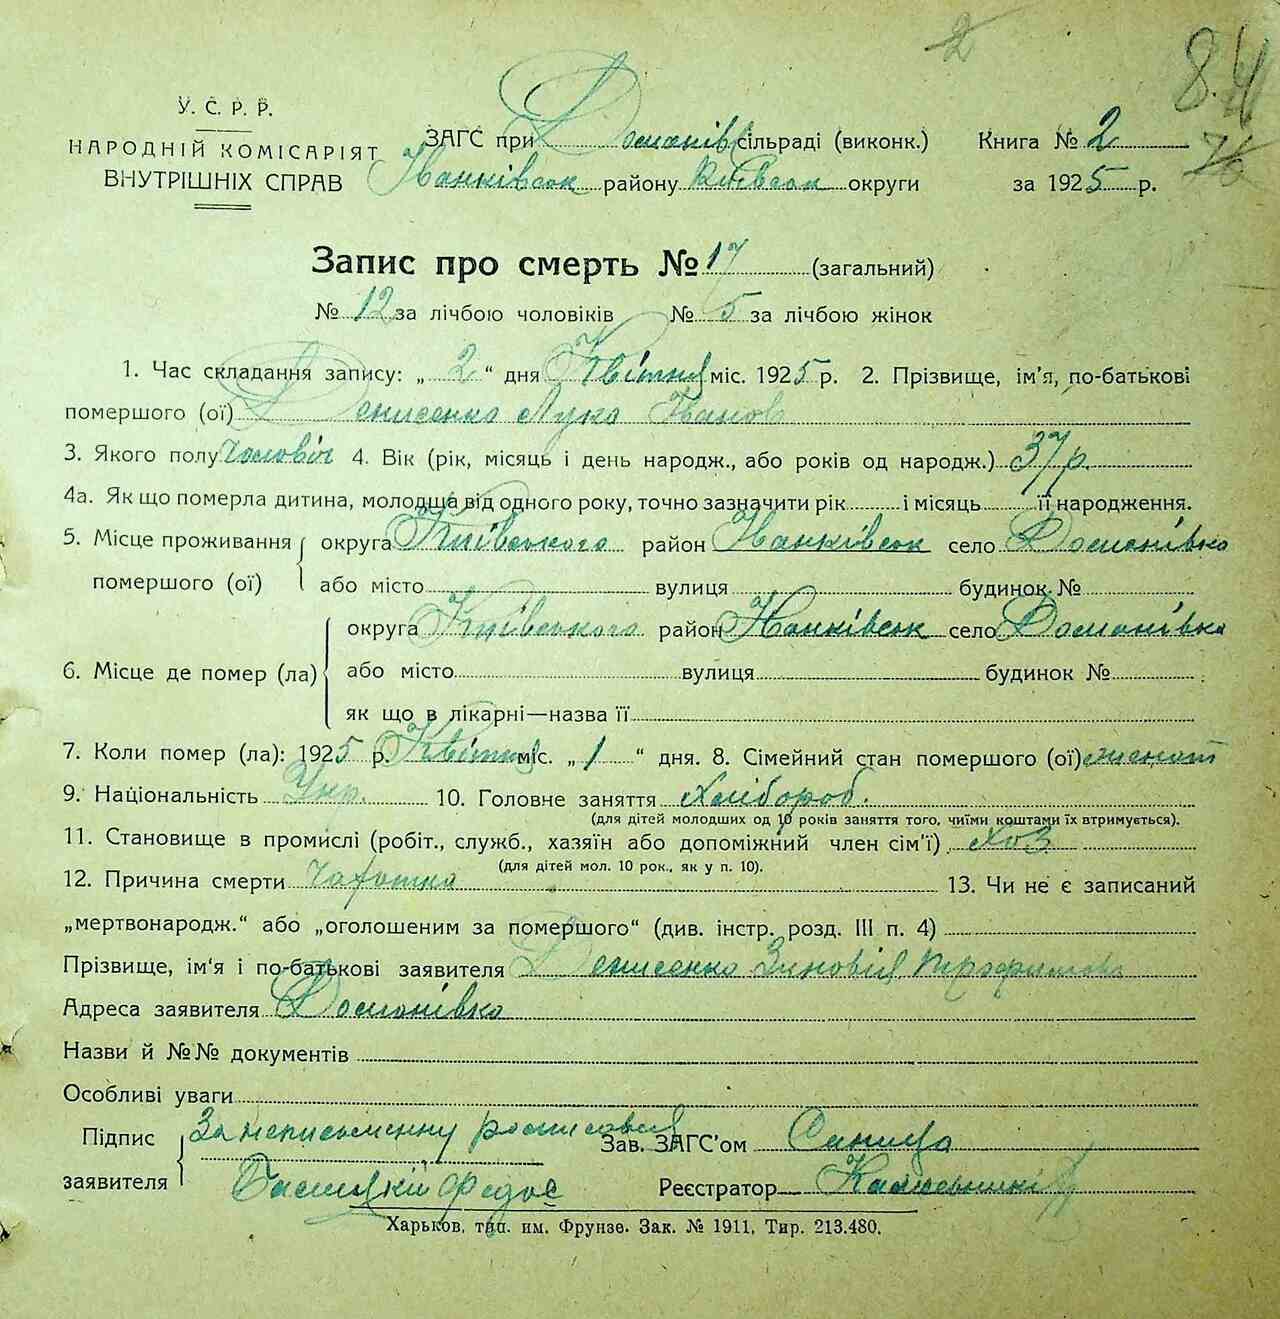 2
8.4
76
У.С.Р.Р.
НАРОДНІЙ КОМІСАРІЯТ
ВНУТРІШНІХ СПРАВ
ЗАГС при Доманів сільраді (виконк.) Книга № 2
Іванківськ району Київськ округи за 1925 р.
Запис про смерть № 17 (загальний)
№ 12 за лічбою чоловіків № 5 за лічбою жінок
1. Час складання запису: „ 2 “ дня Квітня міс. 1925 р. 2. Прізвище, ім'я, по-батькові
помершого (ої) Денисенко Лука Іванов
3. Якого полу чоловіч 4. Вік (рік, місяць і день народж., або років од народж.) 37 р.
4а. Як що померла дитина, молодша від одного року, точно зазначити рік і місяць її народження.
5. Місце проживання помершого (ої) округа Київського район Іванківськ село Доманівка
або місто вулиця будинок №
6. Місце де помер (ла) округа Київського район Іванківськ село Доманівка
або місто вулиця будинок №
як що в лікарні—назва її
7. Коли помер (ла): 1925 р. Квітня міс. „ 1 “ дня. 8. Сімейний стан помершого (ої) женат
9. Національність Укр. 10. Головне заняття хлібороб.
(для дітей молодших од 10 років заняття того, чиїми коштами їх втримується).
11. Становище в промислі (робіт., служб., хазяїн або допоміжний член сім'ї) хоз
(для дітей мол. 10 рок., як у п. 10).
12. Причина смерти Чахотка 13. Чи не є записаний
„мертвонародж.“ або „оголошеним за помершого“ (див. інстр. розд. III п. 4)
Прізвище, ім'я і по-батькові заявителя Денисенко Зиновія Трофимова
Адреса заявителя Доманівка
Назви й №№ документів
Особливі уваги
Підпис заявителя За неписьменну росписався Зав. ЗАГС'ом
Федос Реєстратор
Харьков, тип. им. Фрунзе. Зак. № 1911, Тир. 213.480.